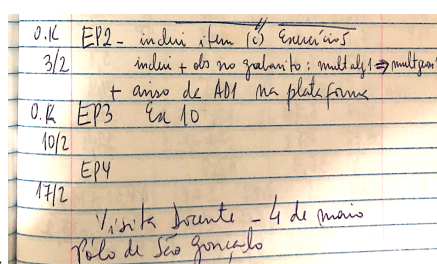 O.K EP2 - inclui item (c) Exercício 5
3/2 inclui + obs no gabarito : mult alg 1 ⇒
+ aviso de AD1 na plataforma
O.K EP3 Ex 10
10/2
EP4
17/2
Visita Docente - 4 de maio
Pólo de São Gonçalo